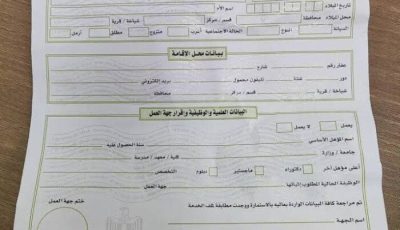 اسم الأم
تاريخ الميلاد
محل الميلاد محافظة قسم / مركز شياخة / قرية
الديانة النوع الحالة الاجتماعية أعزب متزوج مطلق أرمل
بيانات محل الاقامة
عقار رقم شارع
دور شقة تليفون محمول بريد إلكتروني
شياخة / قرية قسم / مركز محافظة
البيانات العلمية والوظيفية وإقرار جهة العمل
يعمل لا يعمل
اسم المؤهل الأساسى سنة الحصول عليه
جامعة / وزارة كلية / معهد / مدرسة
أعلى مؤهل آخر دكتوراه ماجستير دبلوم التخصص
الوظيفة الحالية المطلوب إثباتها جهة العمل
تم مراجعة كافة البيانات الواردة بعاليه بالاستمارة ووجدت مطابقة لملف الخدمة ختم جهة العمل
اسم الجهة